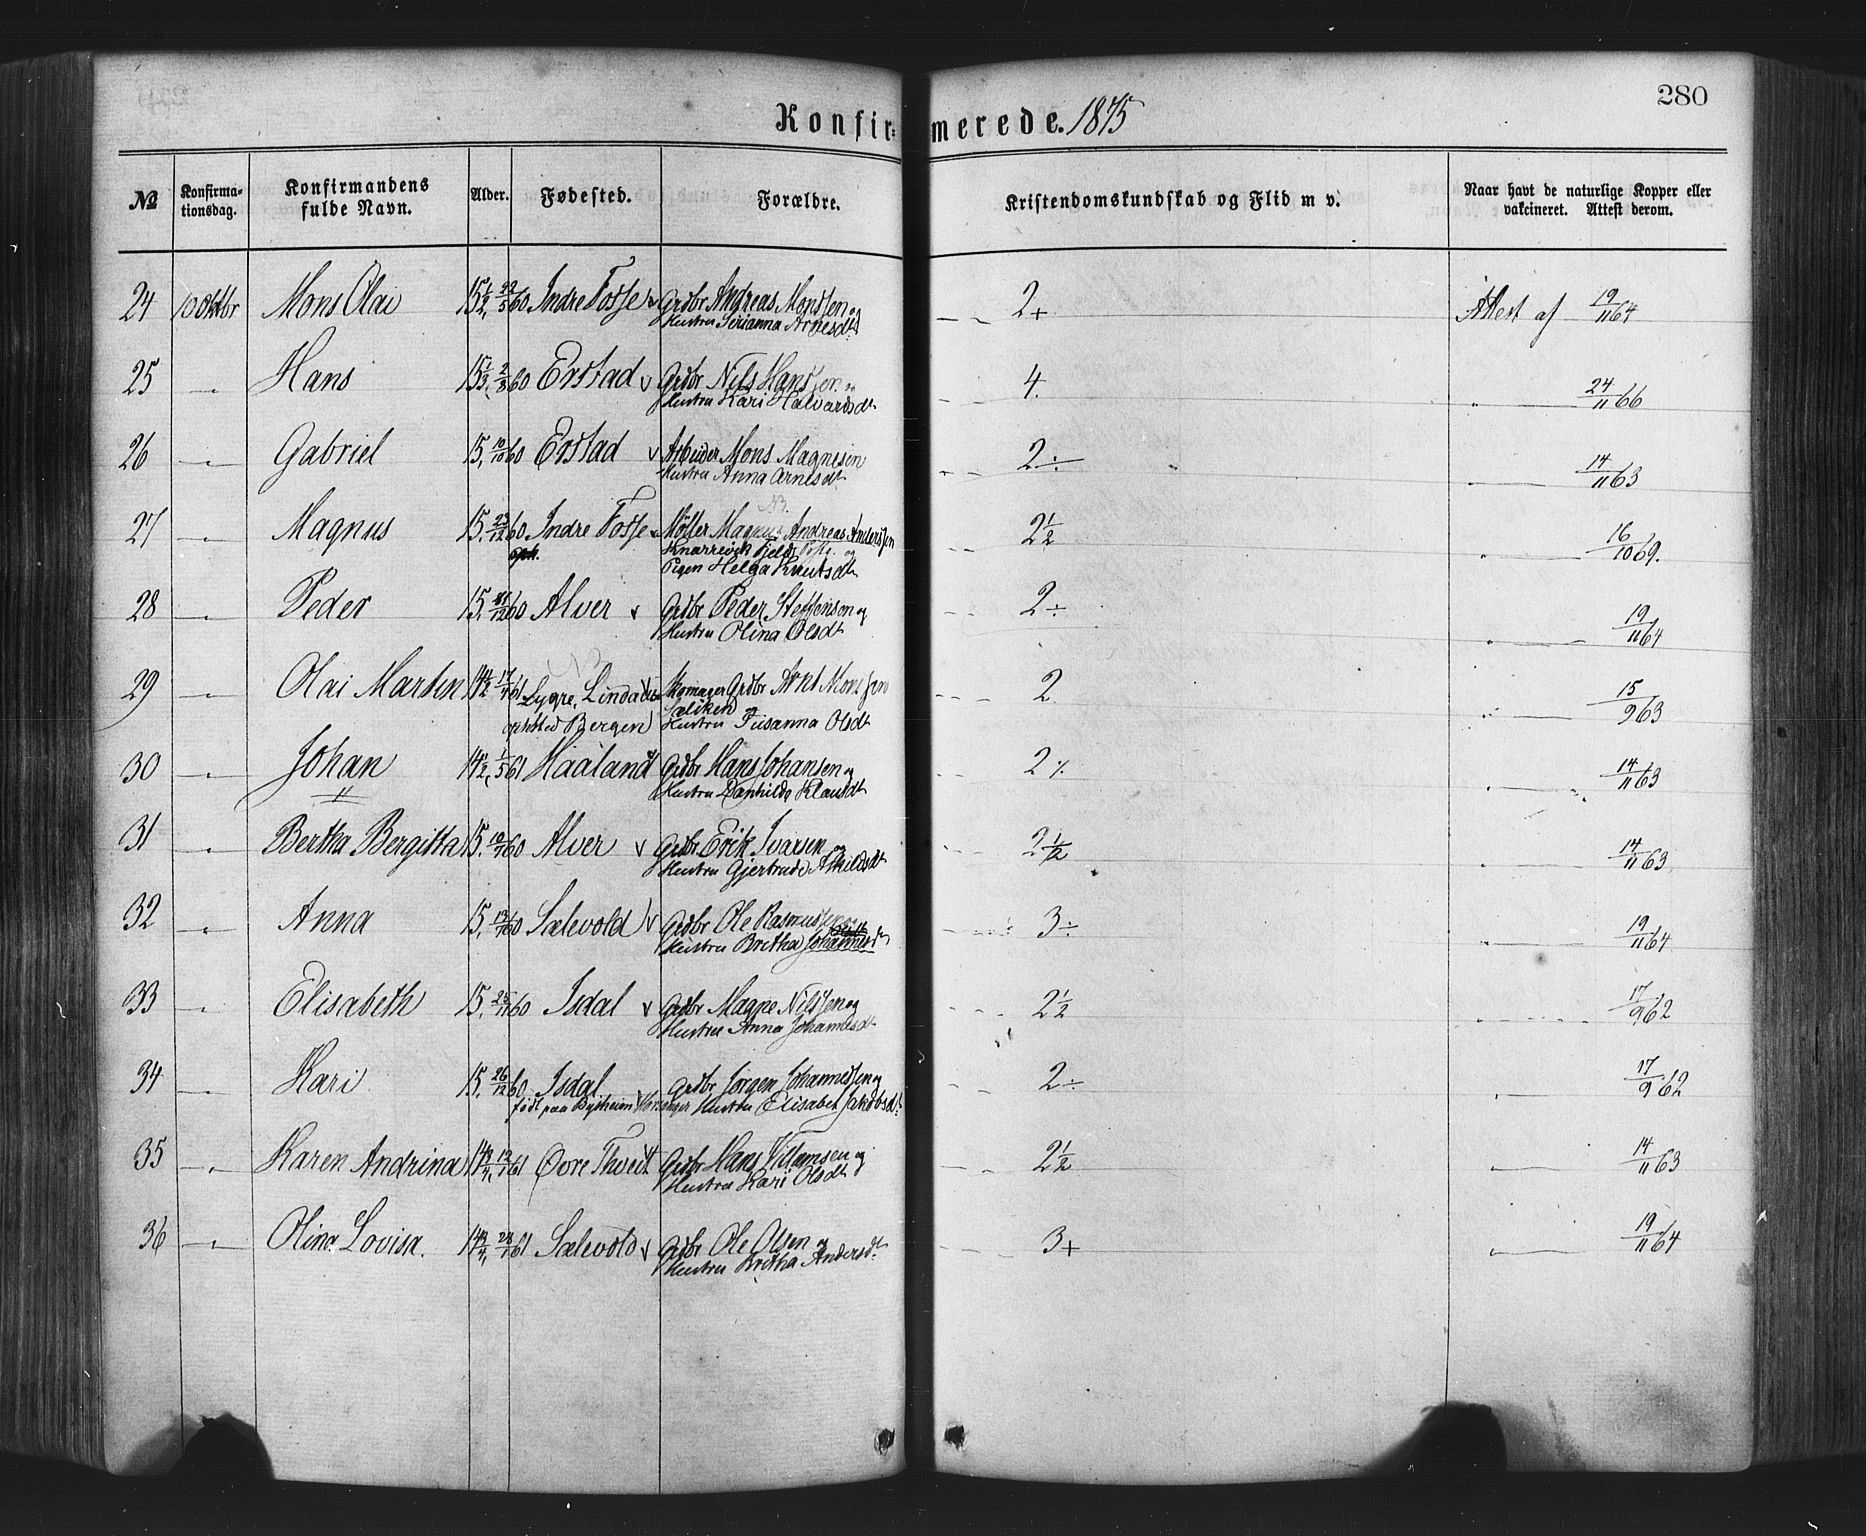 280
Konfirmerede. 1875
№ Konfirma-tionsdag. Konfirmandens fulde Navn. Alder. Fødested. Forældre. Kristendomskundskab og Flid m v. Naar havt de naturlige Kopper eller vakcineret. Attest derom.
24 10 Oktbr Mons Olai 15 1/2, 22/5 60 Indre Fosse v Grdbr Andreas Monssen og 2+ Attest af 19/11 64
Hustru Sirianna Arnesdt
25 Hans 15 2/8 60 Erstad v Grdbr Nils Hanssen og 4. 24/11 66
Hustru Kari Halvardsdt
26 Gabriel 15, 10/10 60 Erstad v Arbeider Mons Magnesen 2÷ 14/11 63
Hustru Anna Arnesdt
NB.
27 Magnus 15, 23/12 60 Indre Fosse v Møller Magnus Andreas Anderssen 2 1/2 16/10 69.
oph. Knarrevik Fjeld og
Pigen Helga Knutsdt
28 Peder 15, 12 60 Alver v Grdbr Peder Steffensen og 2÷ 19/11 64
Hustru Olina Olsdt
29 Olai Marten 14 1/2 17/4 61 Lygre, Lindaas Skomager Grdbr Arne Monssen 2. 15/9 63
opholdsted Bergen Hustru Susanna Olsdt
30 Johan 14 1/2, 1/5 61 Haaland Grdbr Hans Johansen og 2 ٪ 14/11 63
Hustru Ranhilda Klausdt
31 Bertha Bergitta 15, 10/7 60 Alver v Grdbr Erik Ivarsen og 2 1/2 14/11 63
Hustru Gjertrude Askildsdt
32 Anna 15, 60 Sælevold v Grdbr Ole Rasmussen og 3÷ 19/11 64
Hustru Bretha Johannesdt
33 Elisabeth 15, 25/11 60 Isdal v Grdbr Magne Nilssen og 2 1/2 17/9 62
Hustru Anna Johannesdt
34 Kari 15, 26/12 60 Isdal Grdbr Jørgen Johannessen og 2÷ 17/9 62
født paa Bysheim Hosanger Hustru Elisabet Jakobsdt
35 Karen Andrina 14 3/4, 12/1 61 Øvre Thveit Grdbr Hans Villumsen og 2 1/2 14/11 63
Hustru Kari Olsdt
36 Olina Lovisa. 14 3/4, 23/1 61 Sælevold v Grdbr Ole Olsen og 3+ 19/11 64
Hustru Bretha Andersdt